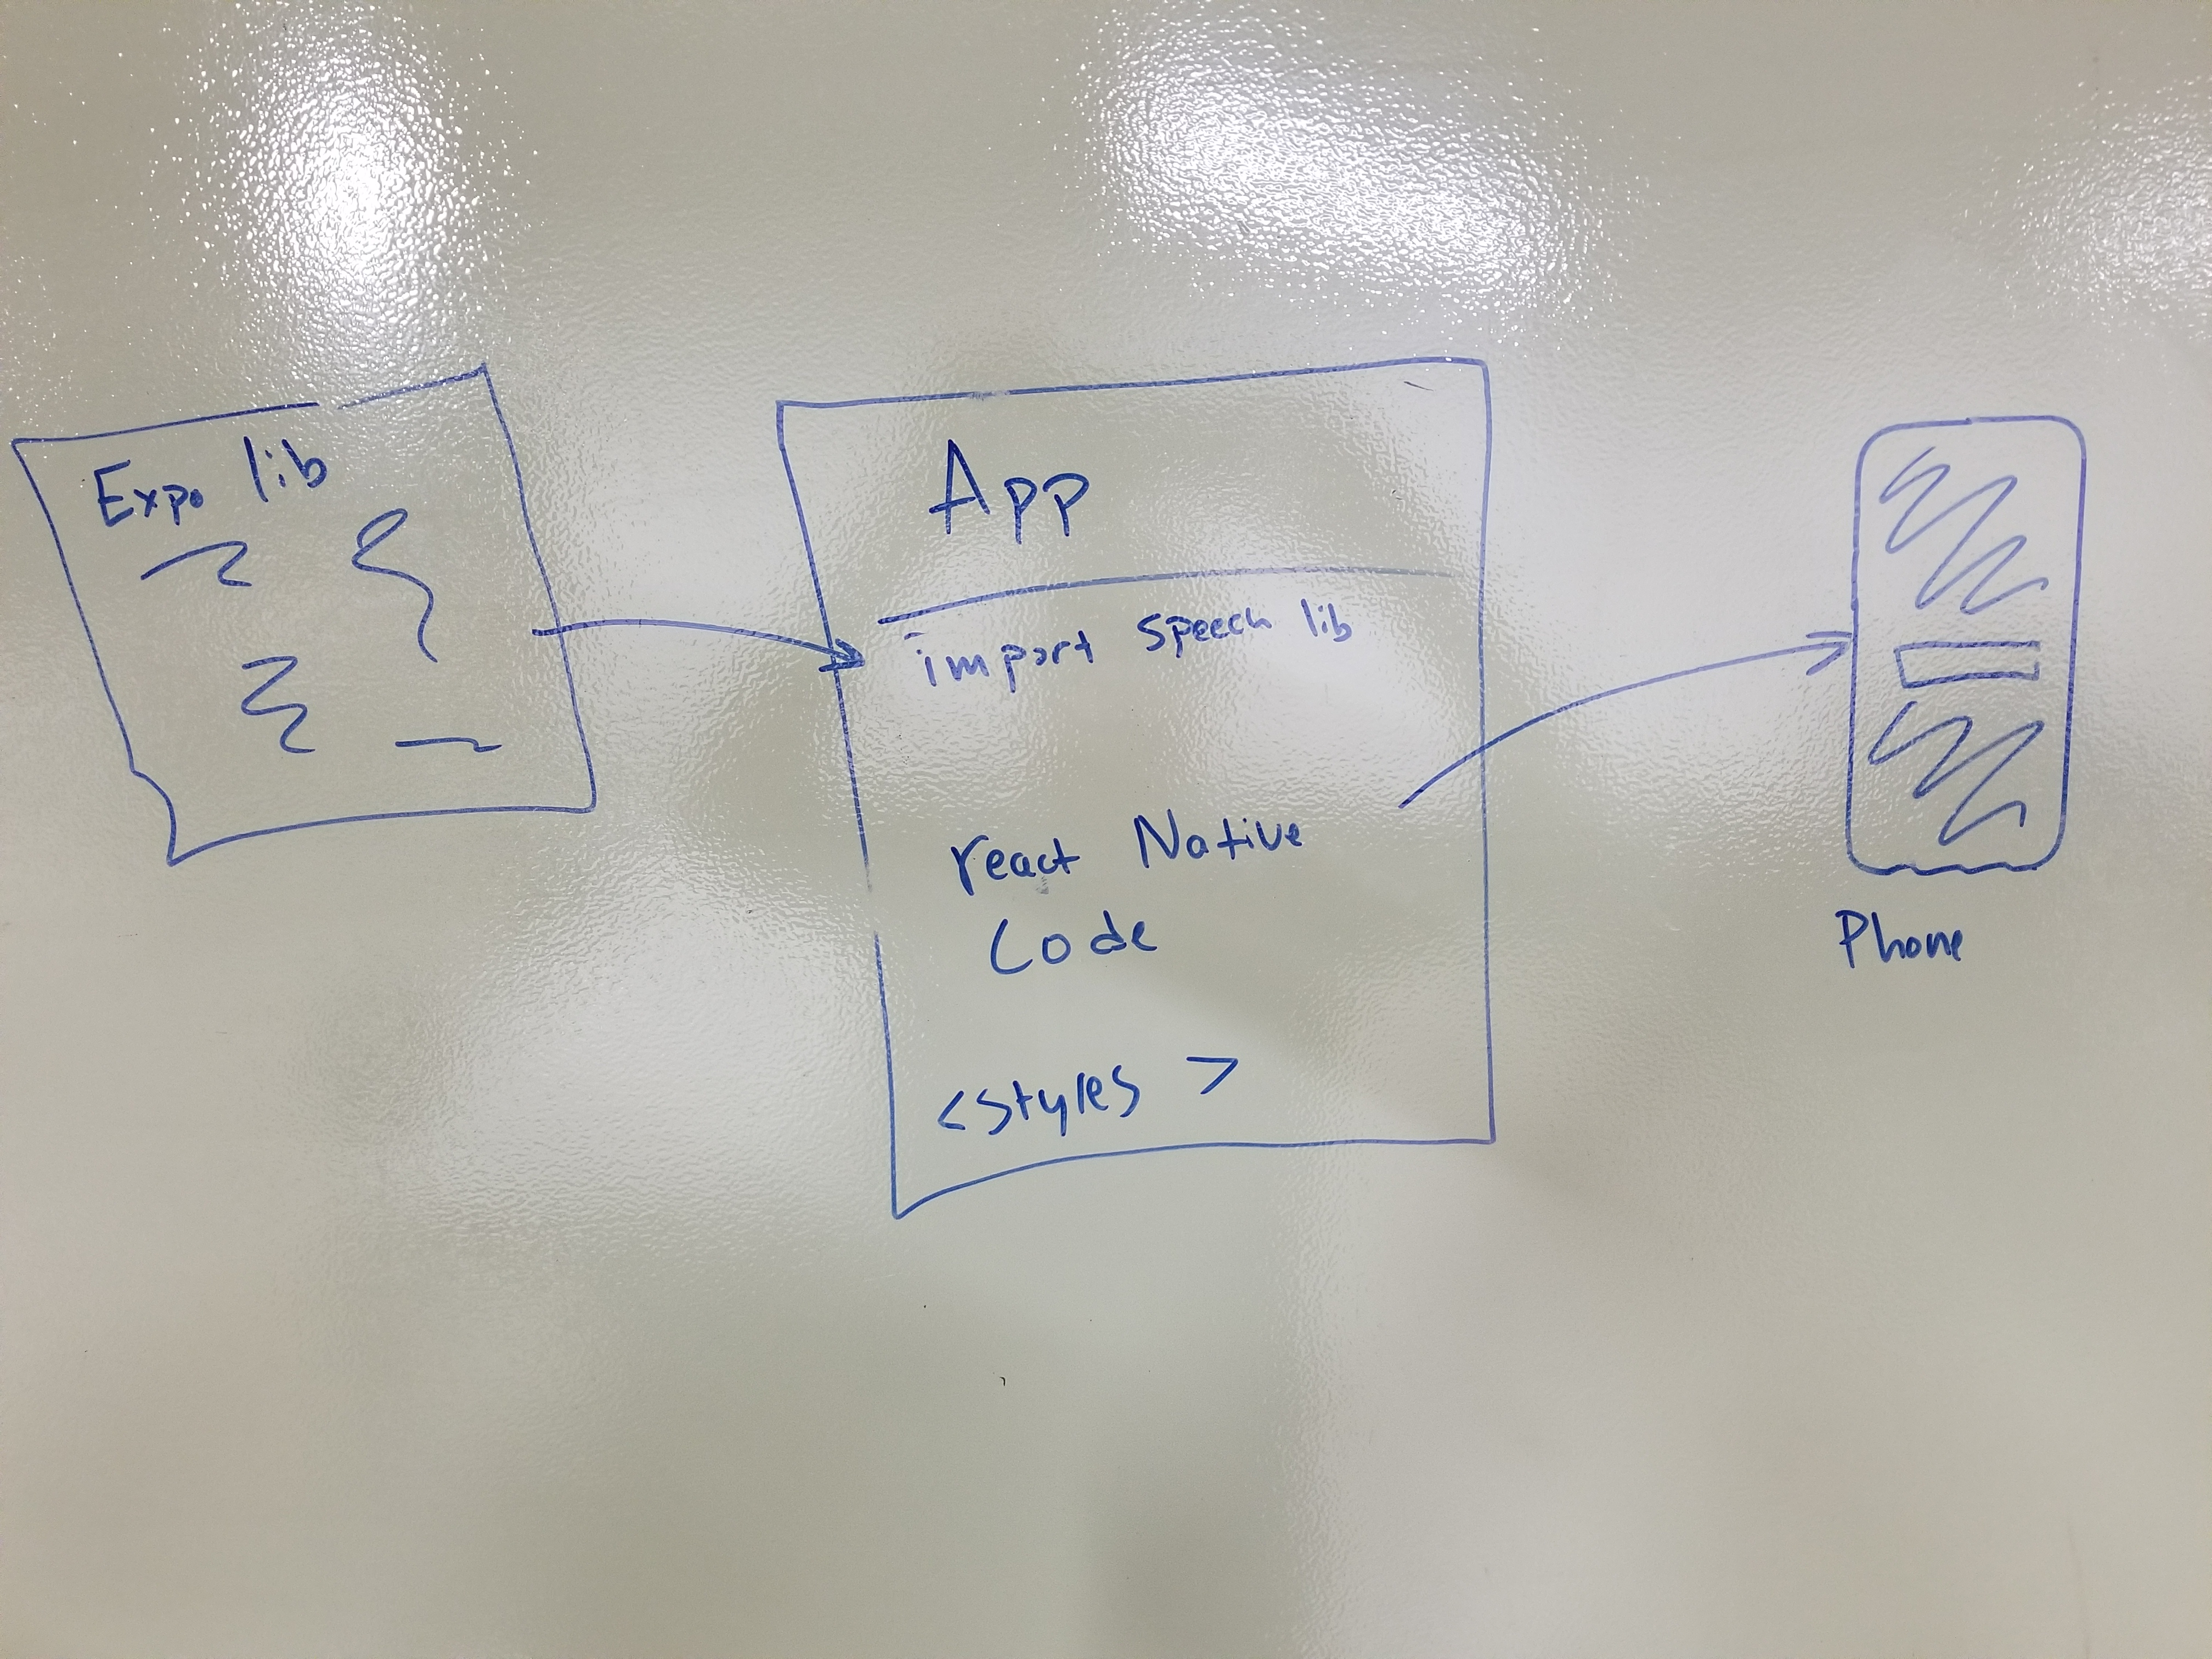 Expo lib
App
import speech lib
react Native
Code
<styles >
Phone